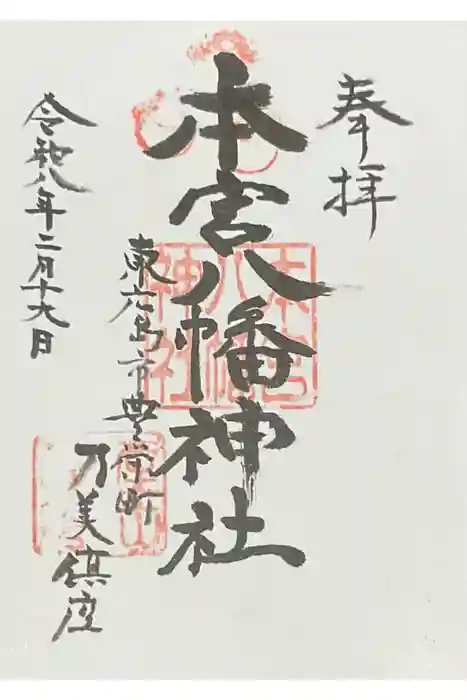 奉拝
本宮八幡神社
東広島市豊栄町
乃美鎮座
令和八年二月十九日
本宮八幡神社